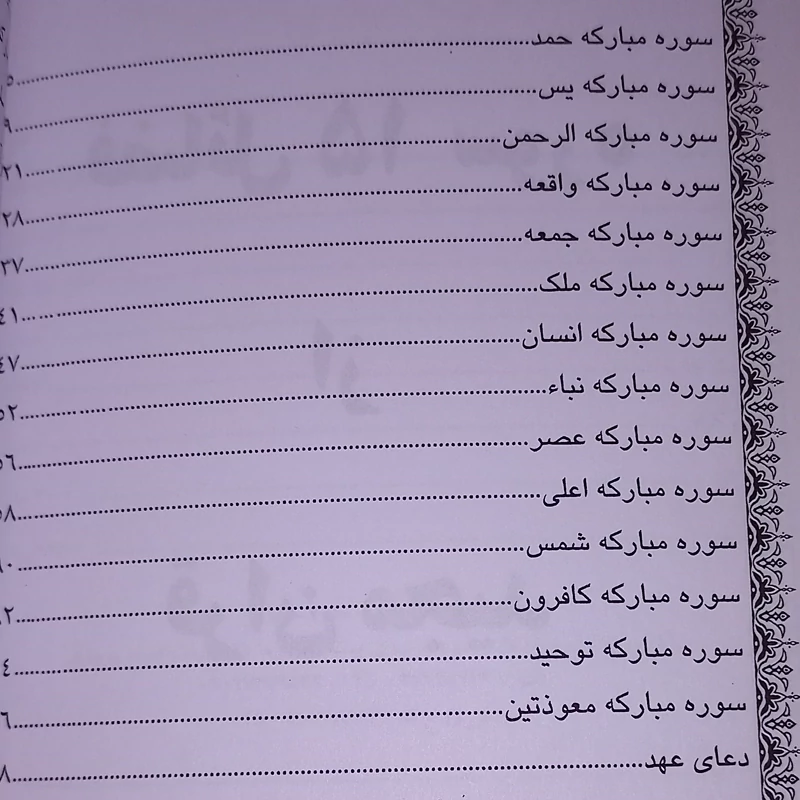 سوره مبارکه حمد
سوره مبارکه یس
سوره مبارکه الرحمن ۲۱
سوره مبارکه واقعه ۲۸
سوره مبارکه جمعه ۳۷
سوره مبارکه ملک ٤١
سوره مبارکه انسان ٤٧
سوره مبارکه نباء ۵۲
سوره مبارکه عصر ۵٦
سوره مبارکه اعلی ۵۸
سوره مبارکه شمس
سوره مبارکه کافرون
سوره مبارکه توحید
سوره مبارکه معوذتین
دعای عهد